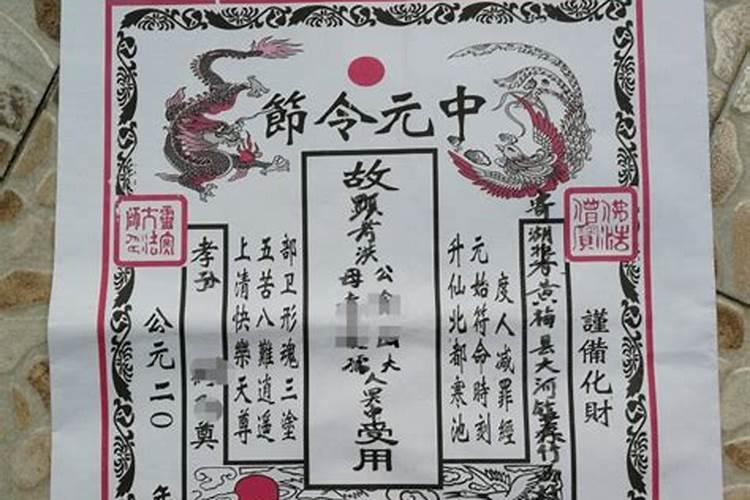 中元令節
佛法僧寶
謹備化財
湖黃梅縣大河鎮
度人减罪經
元始符命時刻
升仙北都寒池
故顯考
公大
母孺人
受用
部卫形魂三塗
五苦八難逍遥
上清快樂天尊
孝孙奠
靈寳大法師印
公元二〇年